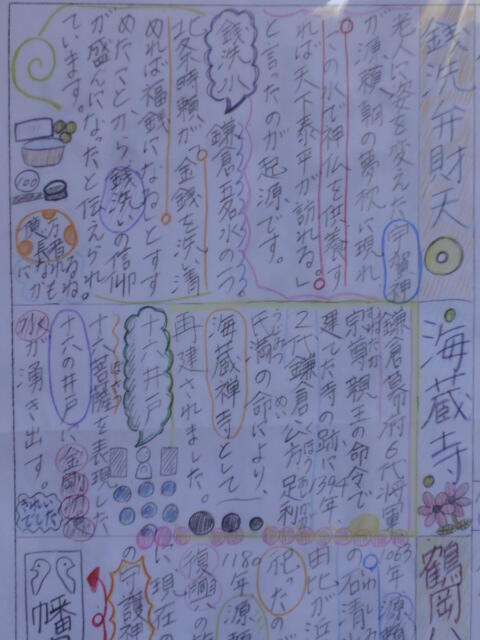 銭洗弁財天
老人に姿を変えた宇賀神
が源頼朝の夢枕に現れ
「この水で神仏を供養す
れば天下泰平が訪れる。」
と言ったのが起源です。
銭洗水 鎌倉五名水の一つ。
北条時頼が「金銭を洗い清
めれば福銭になる」とすす
めたことから銭洗いの信仰
が盛んになったと伝えられ
ています。
100
僕も
長者に
なれる
かもね。
海蔵寺
鎌倉幕府6代将軍
宗尊親王の命令で
建てた寺の跡に
2代鎌倉公方足利
氏満の命により、
海蔵禅寺として
再建されました。
十六井戸
十六菩薩を表現した
十六の井戸に金剛功徳
水が湧き出す。
きれい
でした
鶴岡八
1063年源頼
の石清水
由比が浜
祀ったの
1180年源頼
い現在の
の守護神
幡